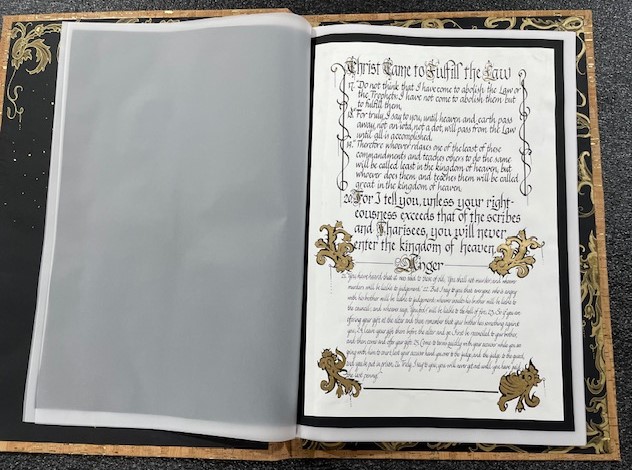 Christ Came to Fulfill the Law
17. Do not think that I have come to abolish the Law or
the Prophets: I have not come to abolish them but
to fulfill them.
18. For truly, I say to you, until heaven and earth pass
away, not an iota, not a dot, will pass from the Law
until all is accomplished.
19. Therefore whoever relaxes one of the least of these
commandments and teaches others to do the same
will be called least in the kingdom of heaven, but
whoever does them and teaches them will be called
great in the kingdom of heaven.
20. For I tell you, unless your right-
eousness exceeds that of the scribes
and Pharisees, you will never
enter the kingdom of heaven.
Anger
21. You have heard that it was said to those of old, You shall not murder; and whoever
murders will be liable to judgement. 22. But I say to you that everyone who is angry
with his brother will be liable to judgement; whoever insults his brother will be liable to
the council; and whoever says, You fool! will be liable to the hell of fire. 23. So if you are
offering your gift at the altar and there remember that your brother has something against
you, 24. leave your gift there before the altar and go. First be reconciled to your brother,
and then come and offer your gift. 25. Come to terms quickly with your accuser while you are
going with him to court, lest your accuser hand you over to the judge, and the judge to the guard,
and you be put in prison. 26. Truly, I say to you, you will never get out until you have paid
the last penny.